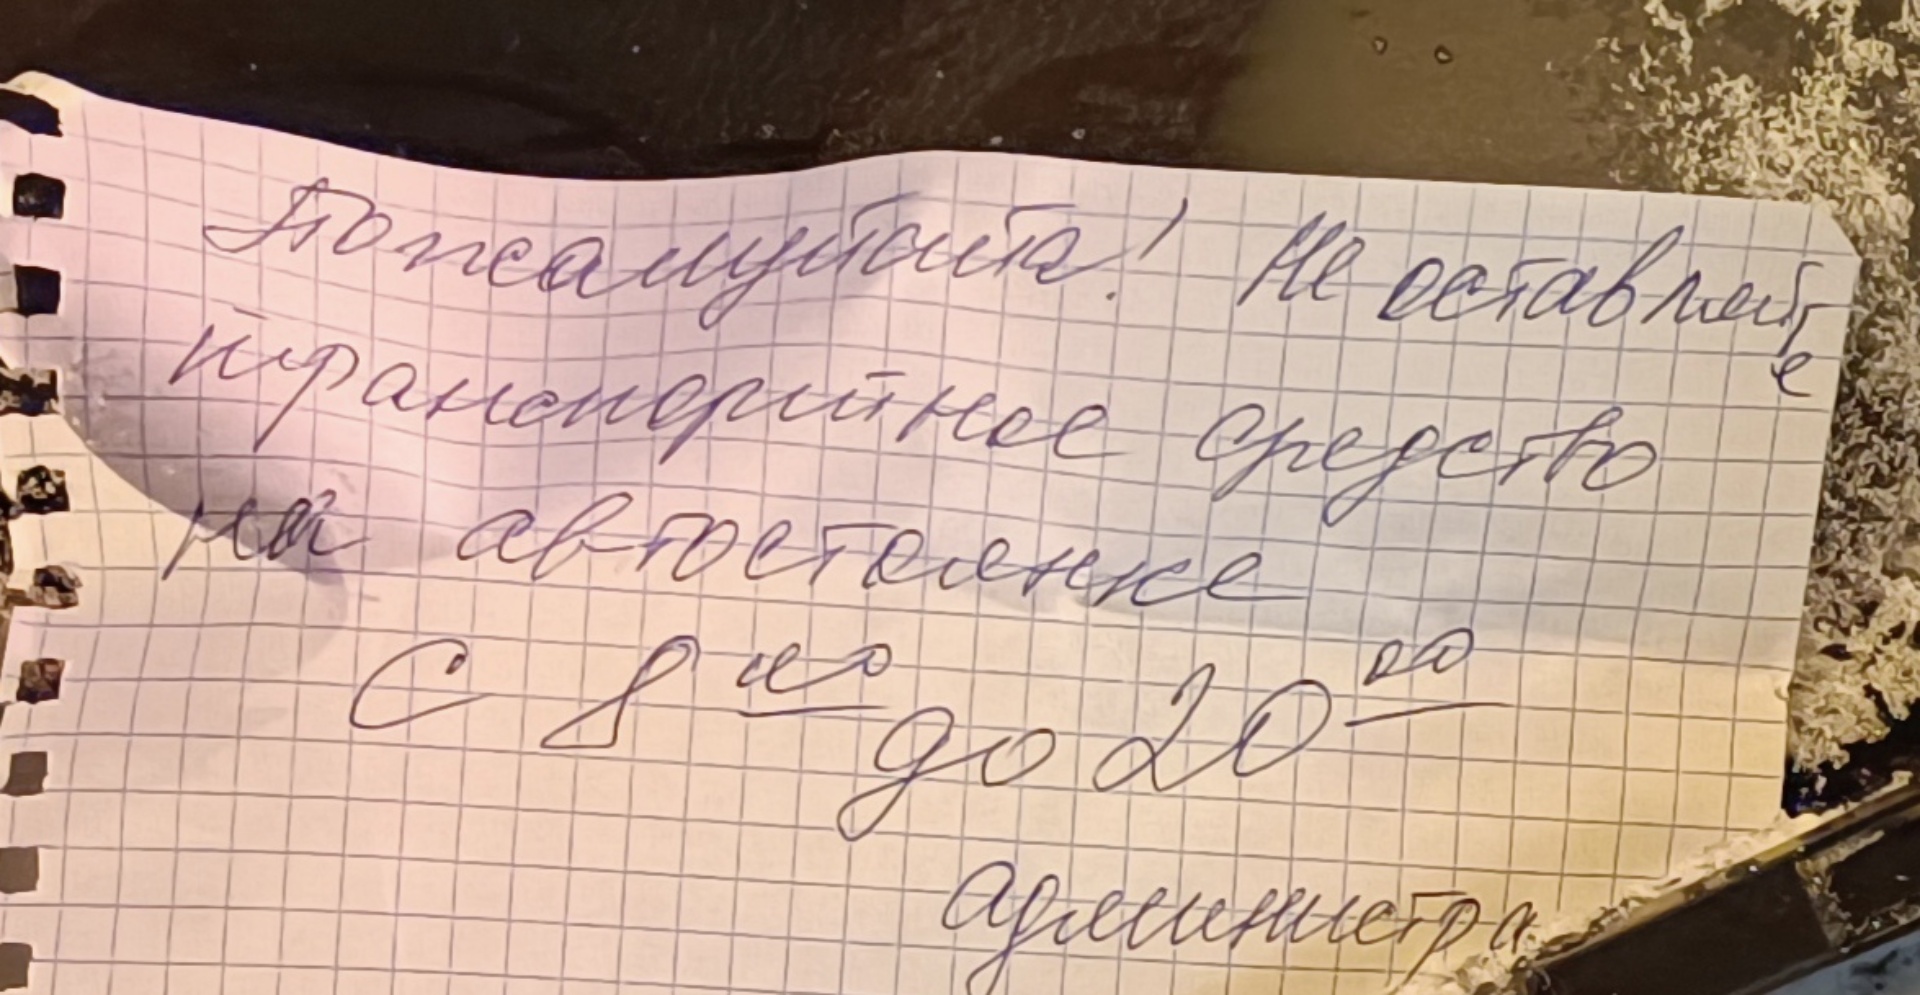 Пожалуйста! Не оставляйте
транспортное средство
на автостоянке
с 8 00 до 20 00
администра